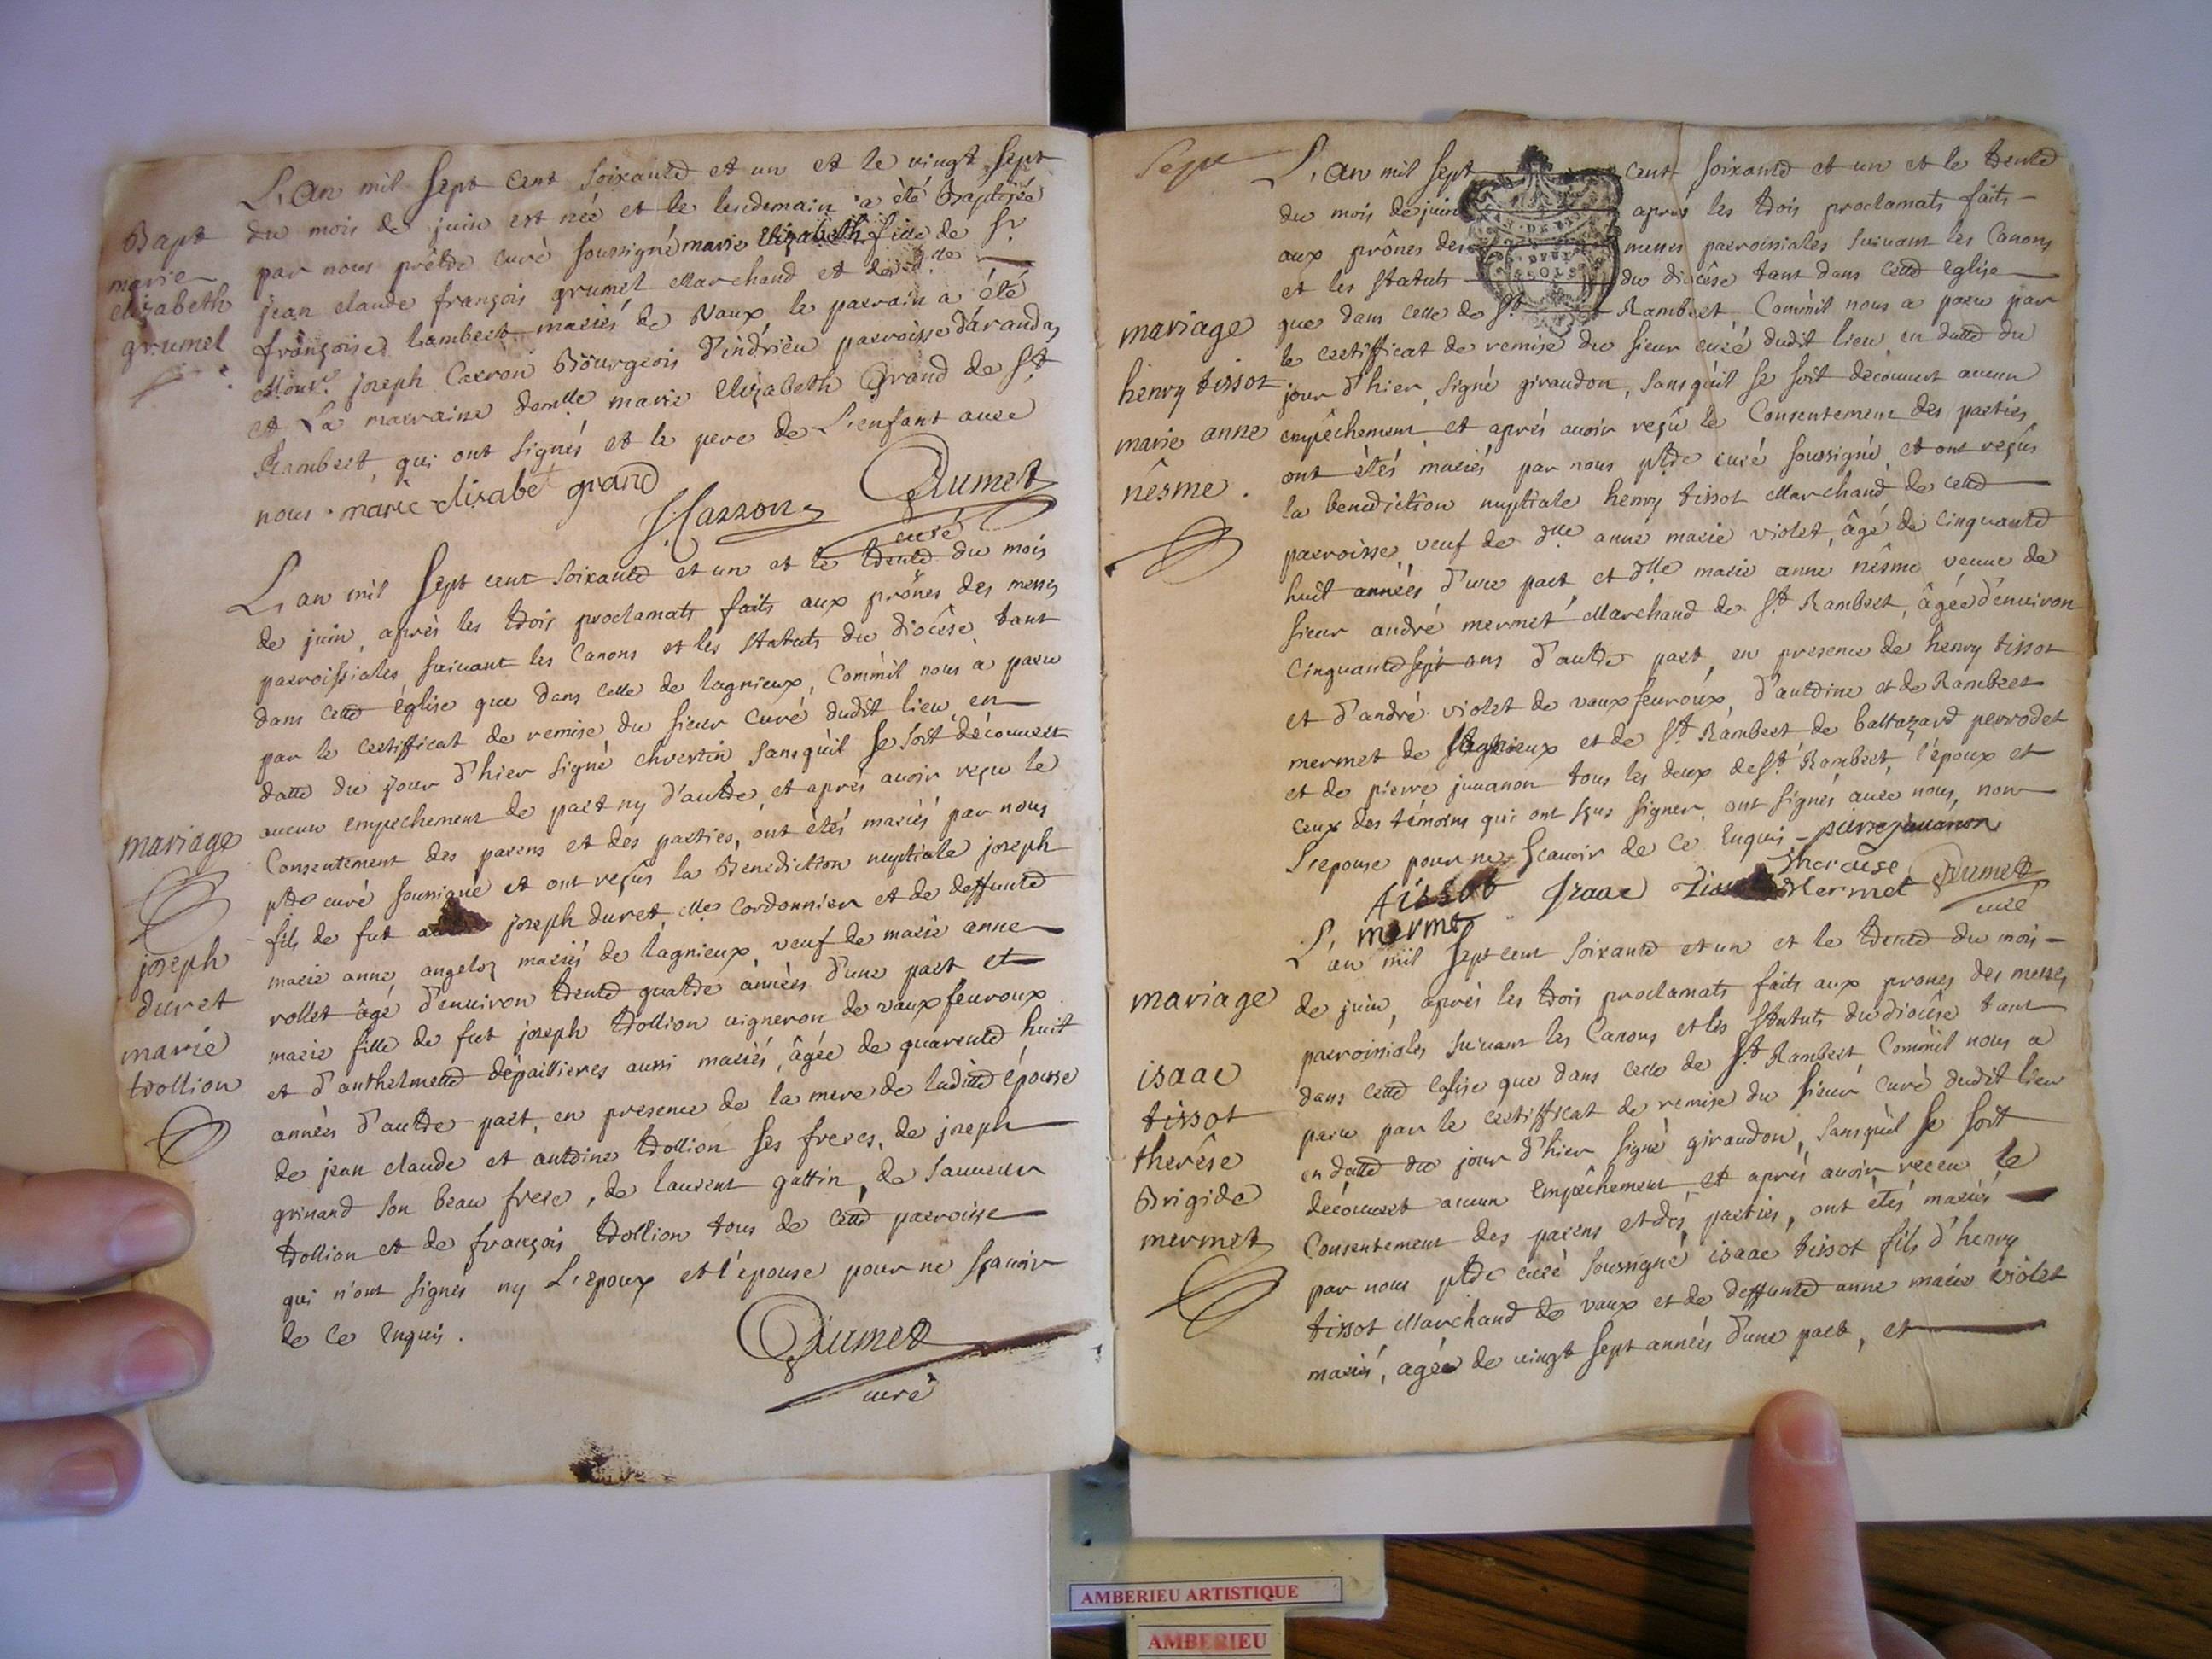 L'an mil sept cent soixante et un et le vingt sept
du mois de juin est née et le lendemain a été Baptisée
par nous prêtre curé soussigné marie Elizabeth fille de Sr
jean claude françois grumel Marchand et de dlle
françoise Lambert mariés de Vaux, le parrain a été
Monr joseph Carron Bourgeois d'indrieu parroisse d'arandas
et La marraine demlle marie Elizabeth Grand de St
Rambert, qui ont signés et le pere de L'enfant avec
nous . marie elisabet grand
Dumet
curé
Bapt
marie
elizabeth
grumel
L'an mil sept cent soixante et un et le trente du mois
de juin, après les trois proclamats faits aux prônes des messes
parroissiales suivant les Canons et les statuts du diocêse, tant
dans cette église que dans celle de lagnieux, Comm'il nous a paru
par le certifficat de remise du sieur curé dudit lieu, en
datte du jour d'hier signé chrestin sans qu'il se soit découvert
aucun empechement de part ny d'autre, et après avoir reçu le
Consentement des parens et des parties, ont étés mariés par nous
ptre curé soussigné et ont reçûs la Benediction nuptiale joseph
fils de fut joseph duret, Me Cordonnier et de deffunte
marie anne angeloz mariés de lagnieux, veuf de marie anne
rollet âgé d'environ trente quatre années d'une part et
marie fille de fut joseph trollion vigneron de vaux feuroux
et d'anthelmette dépaillieres aussi mariés, âgée de quarente huit
années d'autre part, en presence de la mere de laditte épouse
de jean claude et antoine trollion ses freres, de joseph
grinand son beau frere, de laurent gattin, de sauveur
trollion et de françois trollion tous de cette parroisse
qui n'ont signés ny L'epoux et l'épouse pour ne sçavoir
de ce Enquis .
Dumet
curé
mariage
joseph
duret
marie
trollion
Sept
L'an mil sept cent soixante et un et le trente
du mois de juin après les trois proclamats faits
aux prônes des messes parroissiales suivant les Canons
et les statuts du diocêse tant dans cette Eglise
que dans celle de St Rambert Comm'il nous a paru par
le certifficat de remise du sieur curé dudit lieu en datte du
jour d'hier, signé giraudon, sans qu'il se soit découvert aucun
empêchement, et après avoir reçû le Consentement des parties,
ont étés mariés par nous ptre curé soussigné et ont reçûs
la benediction nuptiale henry tissot Marchand de cette
parroisse, veuf de dlle anne marie violet, âgé de cinquante
huit années d'une part, et dlle marie anne nêsme veuve de
sieur andré mermet Marchand de St Rambert, âgée d'environ
cinquante sept ans d'autre part, en presence de henry tissot
et d'andré violet de vaux feuroux, d'antoine et de Rambert
mermet de lagnieux et de St Rambert de baltazard perrodet
et de pierre juuanon tous les deux de St Rambert, l'époux et
ceux des témoins qui ont sçus signer, ont signés avec nous, non
L'epouse pour ne Scavoir de ce Enquis - pierre juuanon
tissot Isaac Theraise Mermet Dumet
mermet curé
mariage
henry tissot
marie anne
nêsme .
L'an mil sept cent soixante et un et le trente du mois
de juin, après les trois proclamats faits aux prones des messes
parroissiales suivant les Canons et les statuts du diocêse tant
dans cette Eglise que dans celle de St Rambert Comm'il nous a
paru par le certifficat de remise du sieur curé dudit lieu
en datte du jour d'hier signé giraudon, sans qu'il se soit
découvert aucun Empêchement et après avoir receu le
Consentement des parens et des parties, ont étés mariés
par nous ptre curé soussigné isaac tissot fils d'henry
tissot Marchand de vaux et de deffunte anne marie violet
mariés, agée de vingt sept années d'une part, et
mariage
isaac
tissot
therêse
Brigide
mermet
AMBERIEU ARTISTIQUE
AMBERIEU